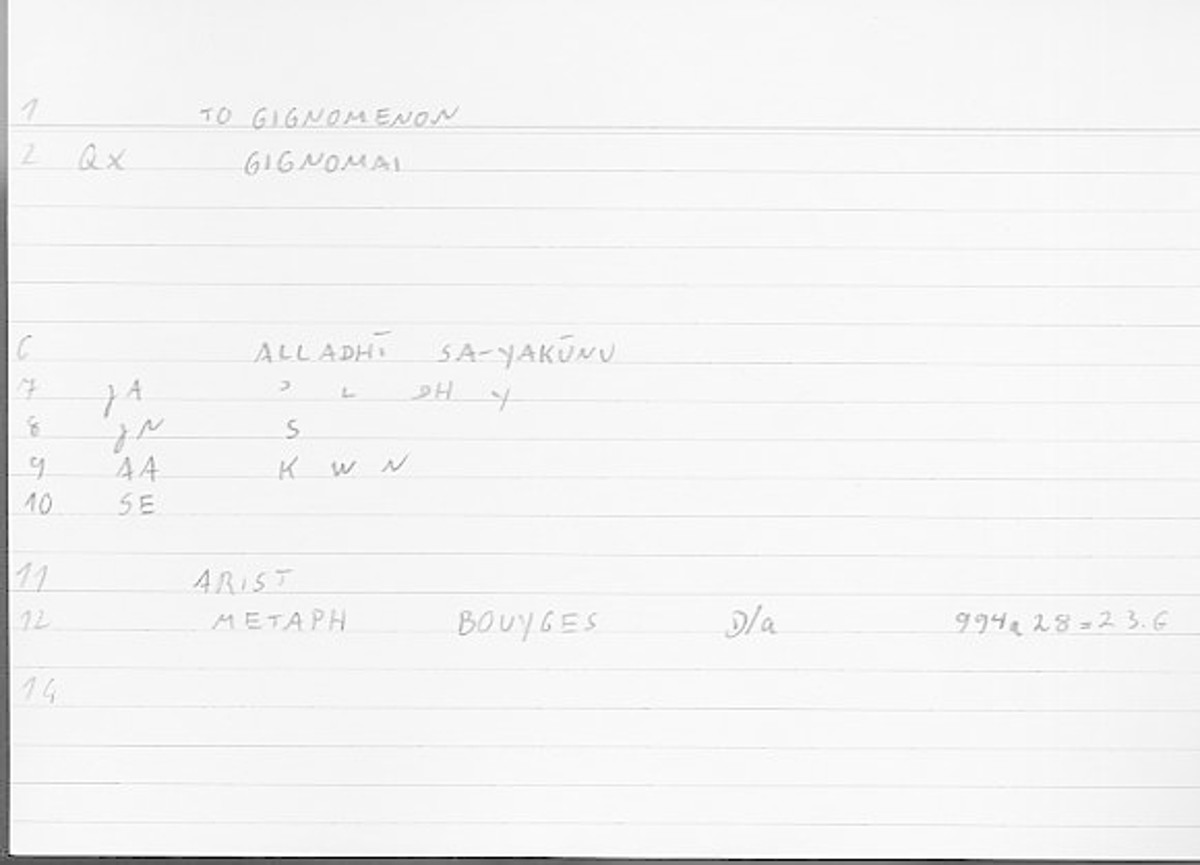 1 TO GIGNOMENON
2 Qx GIGNOMAI
6 ALLADHĪ SA-YAKŪNU
7 jA ʾ L DH Y
8 jN S
9 AA K W N
10 SE
11 ARIST
12 METAPH BOUYGES D/a 994a28=23.6
14